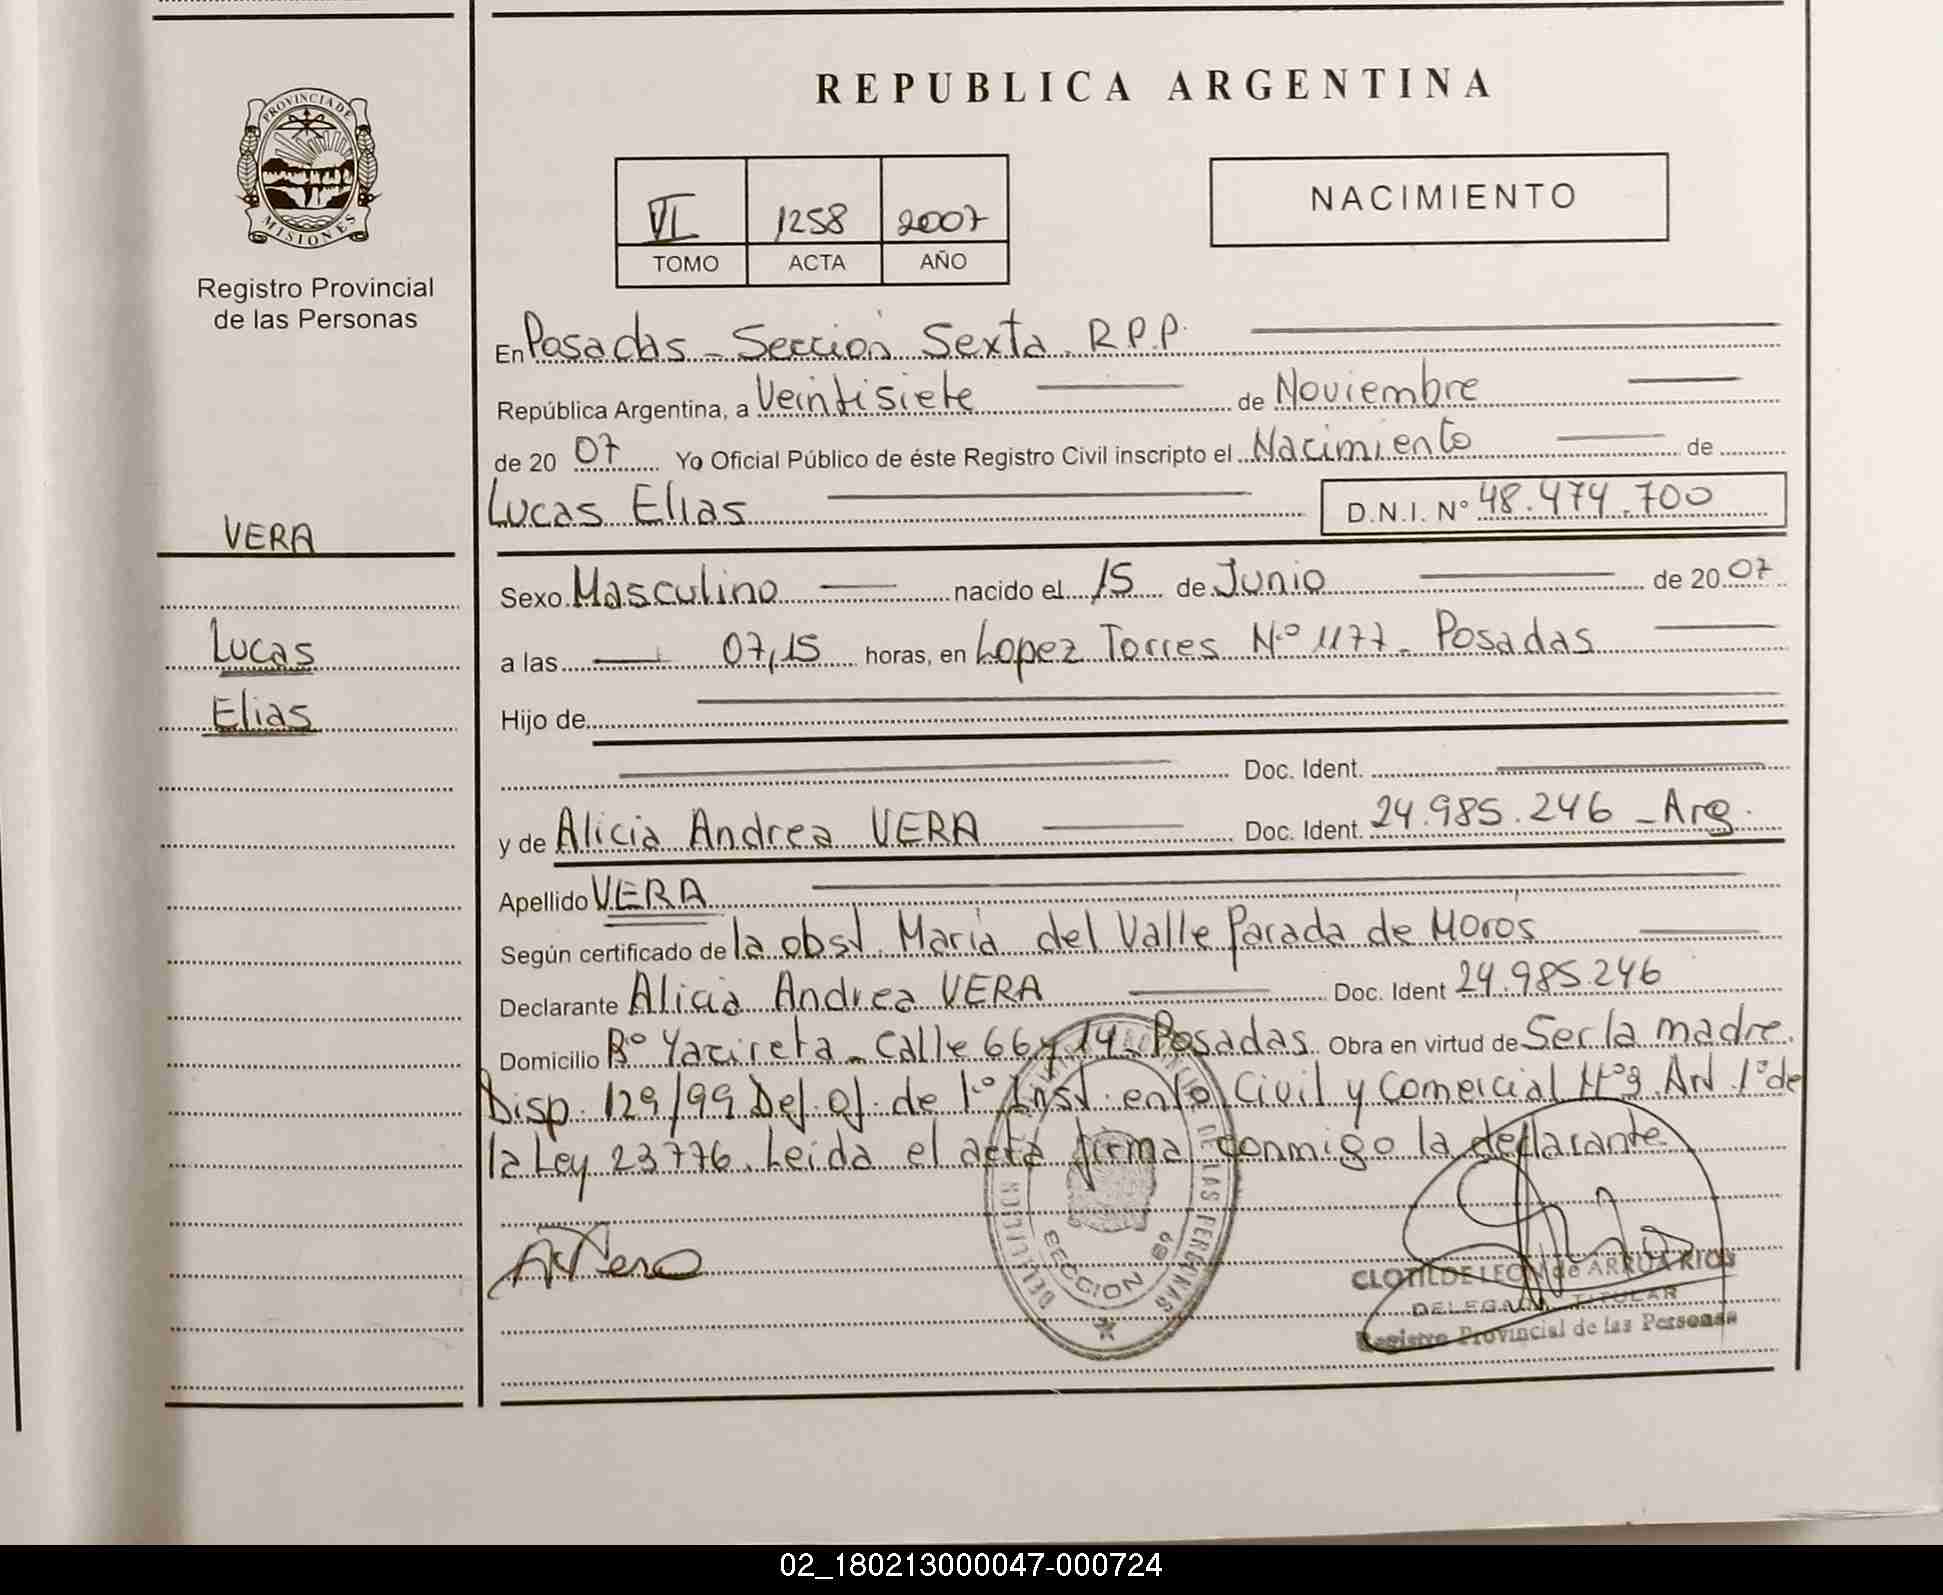 REPUBLICA ARGENTINA
PROVINCIA DE
MISIONES
Registro Provincial
de las Personas
VI 1258 2007
TOMO ACTA AÑO
NACIMIENTO
En Posadas - Sección Sexta. R.P.P.
República Argentina, a Veintisiete de Noviembre
de 20 07 Yo Oficial Público de éste Registro Civil inscripto el Nacimiento de
Lucas Elias D.N.I. Nº 48.474.700
VERA
Lucas
Elias
Sexo Masculino nacido el 15 de Junio de 20 07
a las 07,15 horas, en Lopez Torres Nº 1177 - Posadas
Hijo de
Doc. Ident.
y de Alicia Andrea VERA Doc. Ident. 24.985.246 - Arg.
Apellido VERA
Según certificado de la obst. Maria del Valle Parada de Moros
Declarante Alicia Andrea VERA Doc. Ident 24.985.246
Domicilio Bº Yacireta - Calle 66 y 14 - Posadas Obra en virtud de Ser la madre.
Disp. 129/99 Def. Of. de 1º Inst. en lo Civil y Comercial Nº3 Art. 1º de
la Ley 23776. Leida el acta firma conmigo la declarante
SECCION 6ª
DE LAS PERSONAS
CLOTILDE LEON de ARRUA RIOS
DELEGADA TITULAR
Registro Provincial de las Personas
02_180213000047-000724